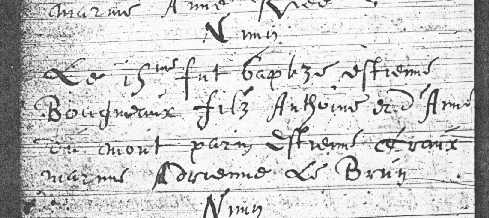 marine Anne
Nimy
Le 15me fut baptize estienne
Bougneaux filz Anthoine et d'Anne
du mont parin Estienne
marine Adrienne Le Brun
Nimy